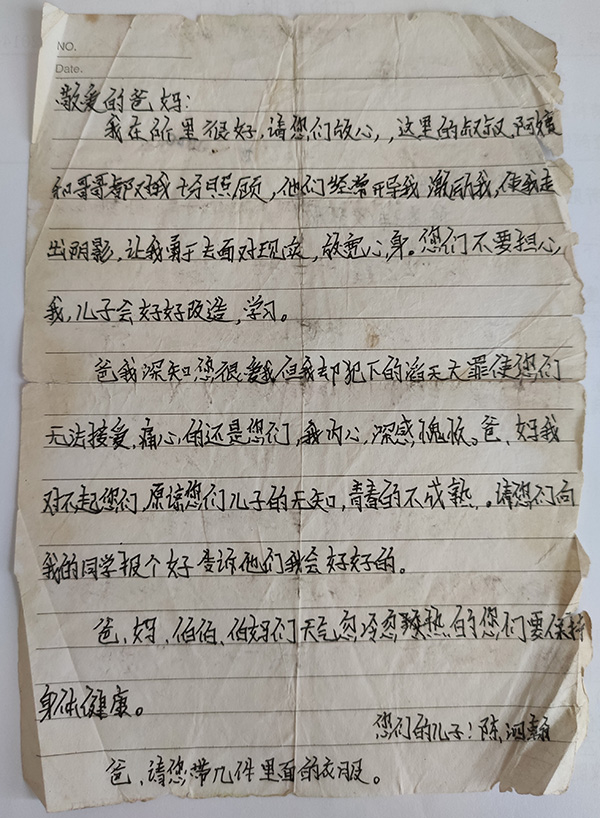 NO.
Date.
敬爱的爸妈：
我在所里很好，请您们放心，，这里的叔叔，阿姨
和哥哥都对我十分照顾，他们经常开导我激励我，使我走
出阴影，让我勇于去面对现实，放宽心身。您们不要担心
我，儿子会好好改造，学习。
爸我深知您很爱我但我却犯下的滔天大罪使您们
无法接受，痛心的还是您们，我内心，深感愧疚。爸、妈我
对不起您们，原谅您们儿子的无知，青春的不成熟，。请您们向
我的同学报个好告诉他们我会好好的。
爸、妈、伯伯、伯妈们天气忽冷忽热的您们要保持
身体健康。
您们的儿子：陈泗翰
爸、请您带几件里面的衣服。